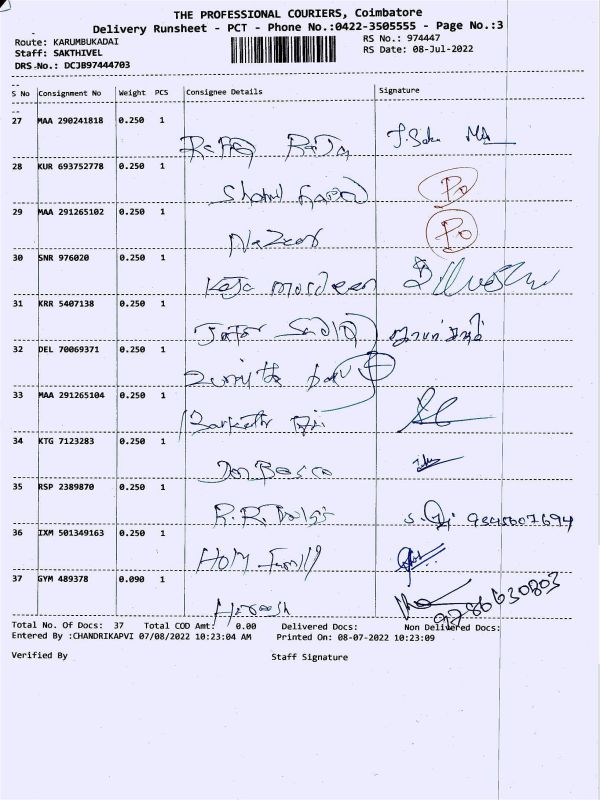 THE PROFESSIONAL COURIERS, Coimbatore
Delivery Runsheet - PCT - Phone No.:0422-3505555 - Page No.:3
Route: KARUMBUKADAI
RS No.: 974447
Staff: SAKTHIVEL
RS Date: 08-Jul-2022
DRS No.: DCJB97444703
S No Consignment No Weight PCS Consignee Details Signature
27 MAA 290241818 0.250 1
28 KUR 693752778 0.250 1
29 MAA 291265102 0.250 1
Nazeer
30 SNR 976020 0.250 1
Kaja
31 KRR 5407138 0.250 1
32 DEL 70069371 0.250 1
33 MAA 291265104 0.250 1
34 KTG 7123283 0.250 1
Don Bosco
35 RSP 2389870 0.250 1
R.R.
36 IXM 501349163 0.250 1
Holy Family
37 GYM 489378 0.090 1
Total No. Of Docs: 37 Total COD Amt: 0.00 Delivered Docs: Non Delivered Docs:
Entered By :CHANDRIKAPVI 07/08/2022 10:23:04 AM Printed On: 08-07-2022 10:23:09
Verified By Staff Signature